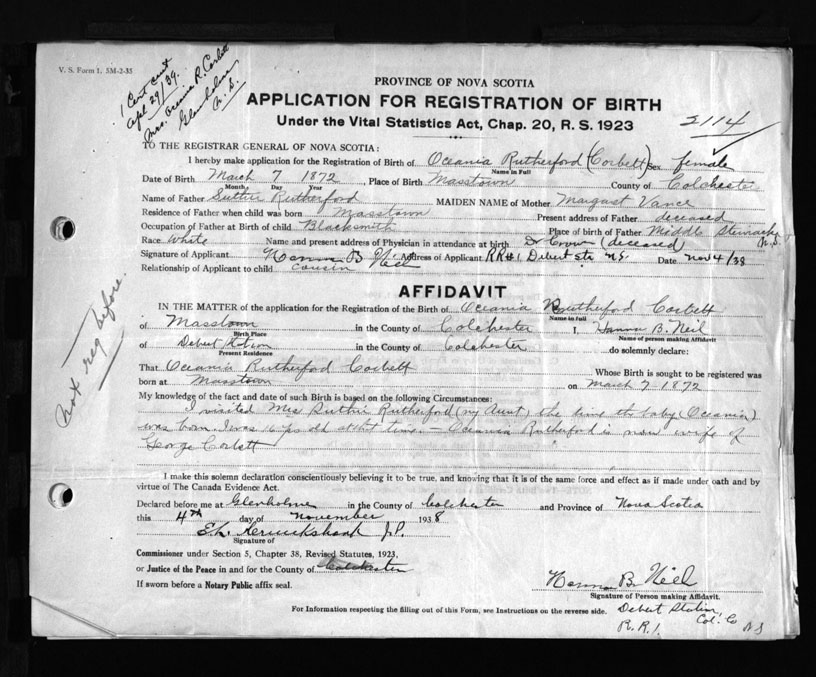 V. S. Form 1. 5M-2-35
1 Cert sent
Apl 29/39.
Mrs. Oceania R. Corbett
Glenholme
N. S.
PROVINCE OF NOVA SCOTIA
APPLICATION FOR REGISTRATION OF BIRTH
Under the Vital Statistics Act, Chap. 20, R. S. 1923
2114
TO THE REGISTRAR GENERAL OF NOVA SCOTIA:
I hereby make application for the Registration of Birth of Oceania Rutherford (Corbett) Sex female
Name in Full
Date of Birth March 7 1872 Place of Birth Masstown County of Colchester
Month Day Year
Name of Father Suther Rutherford MAIDEN NAME of Mother Margaret Vance
Residence of Father when child was born Masstown Present address of Father deceased
Occupation of Father at Birth of child Blacksmith Place of birth of Father Middle Stewiacke N.S.
Race White Name and present address of Physician in attendance at birth Dr Crowe (deceased)
Signature of Applicant B Neil Address of Applicant RR#1 Debert Sta N.S. Date Nov 4/38
Relationship of Applicant to child cousin
AFFIDAVIT
IN THE MATTER of the application for the Registration of the Birth of Oceania Rutherford Corbett
Name in full
of Masstown in the County of Colchester I, B. Neil
Birth Place Name of person making Affidavit
of Debert Station in the County of Colchester do solemnly declare:
Present Residence
That Oceania Rutherford Corbett Whose Birth is sought to be registered was
born at Masstown on March 7 1872
My knowledge of the fact and date of such Birth is based on the following Circumstances:
I visited Mrs Suther Rutherford (my Aunt) the time the baby (Oceania)
was born I was 16 yrs old at that time. - Oceania Rutherford is now wife of
George Corbett
not reg before.
I make this solemn declaration conscientiously believing it to be true, and knowing that it is of the same force and effect as if made under oath and by
virtue of The Canada Evidence Act.
Declared before me at Glenholme in the County of Colchester and Province of Nova Scotia
this 4th day of November 1938
E. L. J.P.
Signature of
Commissioner under Section 5, Chapter 38, Revised Statutes, 1923,
or Justice of the Peace in and for the County of Colchester
If sworn before a Notary Public affix seal.
B. Neil
Signature of Person making Affidavit.
For Information respecting the filling out of this Form, see Instructions on the reverse side.
Debert Station
R.R.1. Col. Co N S